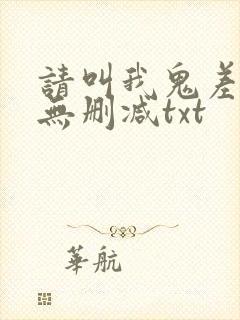 請叫我鬼差
無删减txt
華航